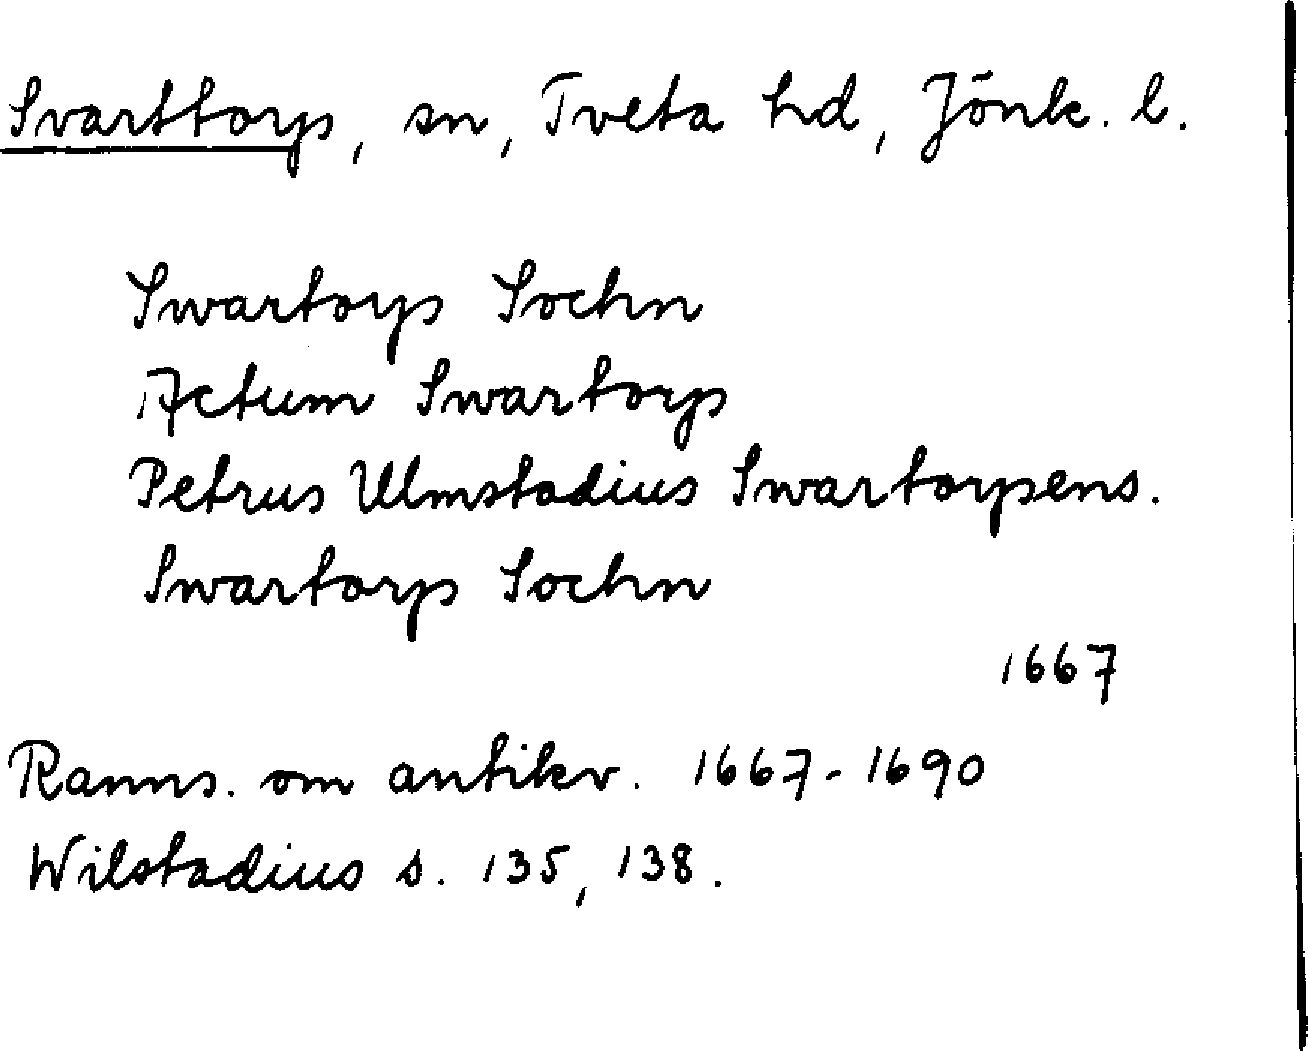 Svarttorps, sn, Tveta hd, Jönk. l.
Swartorps Sochn
Actum Swartorps
Petrus Ulmstadius Swartorpsens.
Swartorps Sochn
1667
Ranns. om antikv. 1667-1690
Wilstadius s. 135, 138.